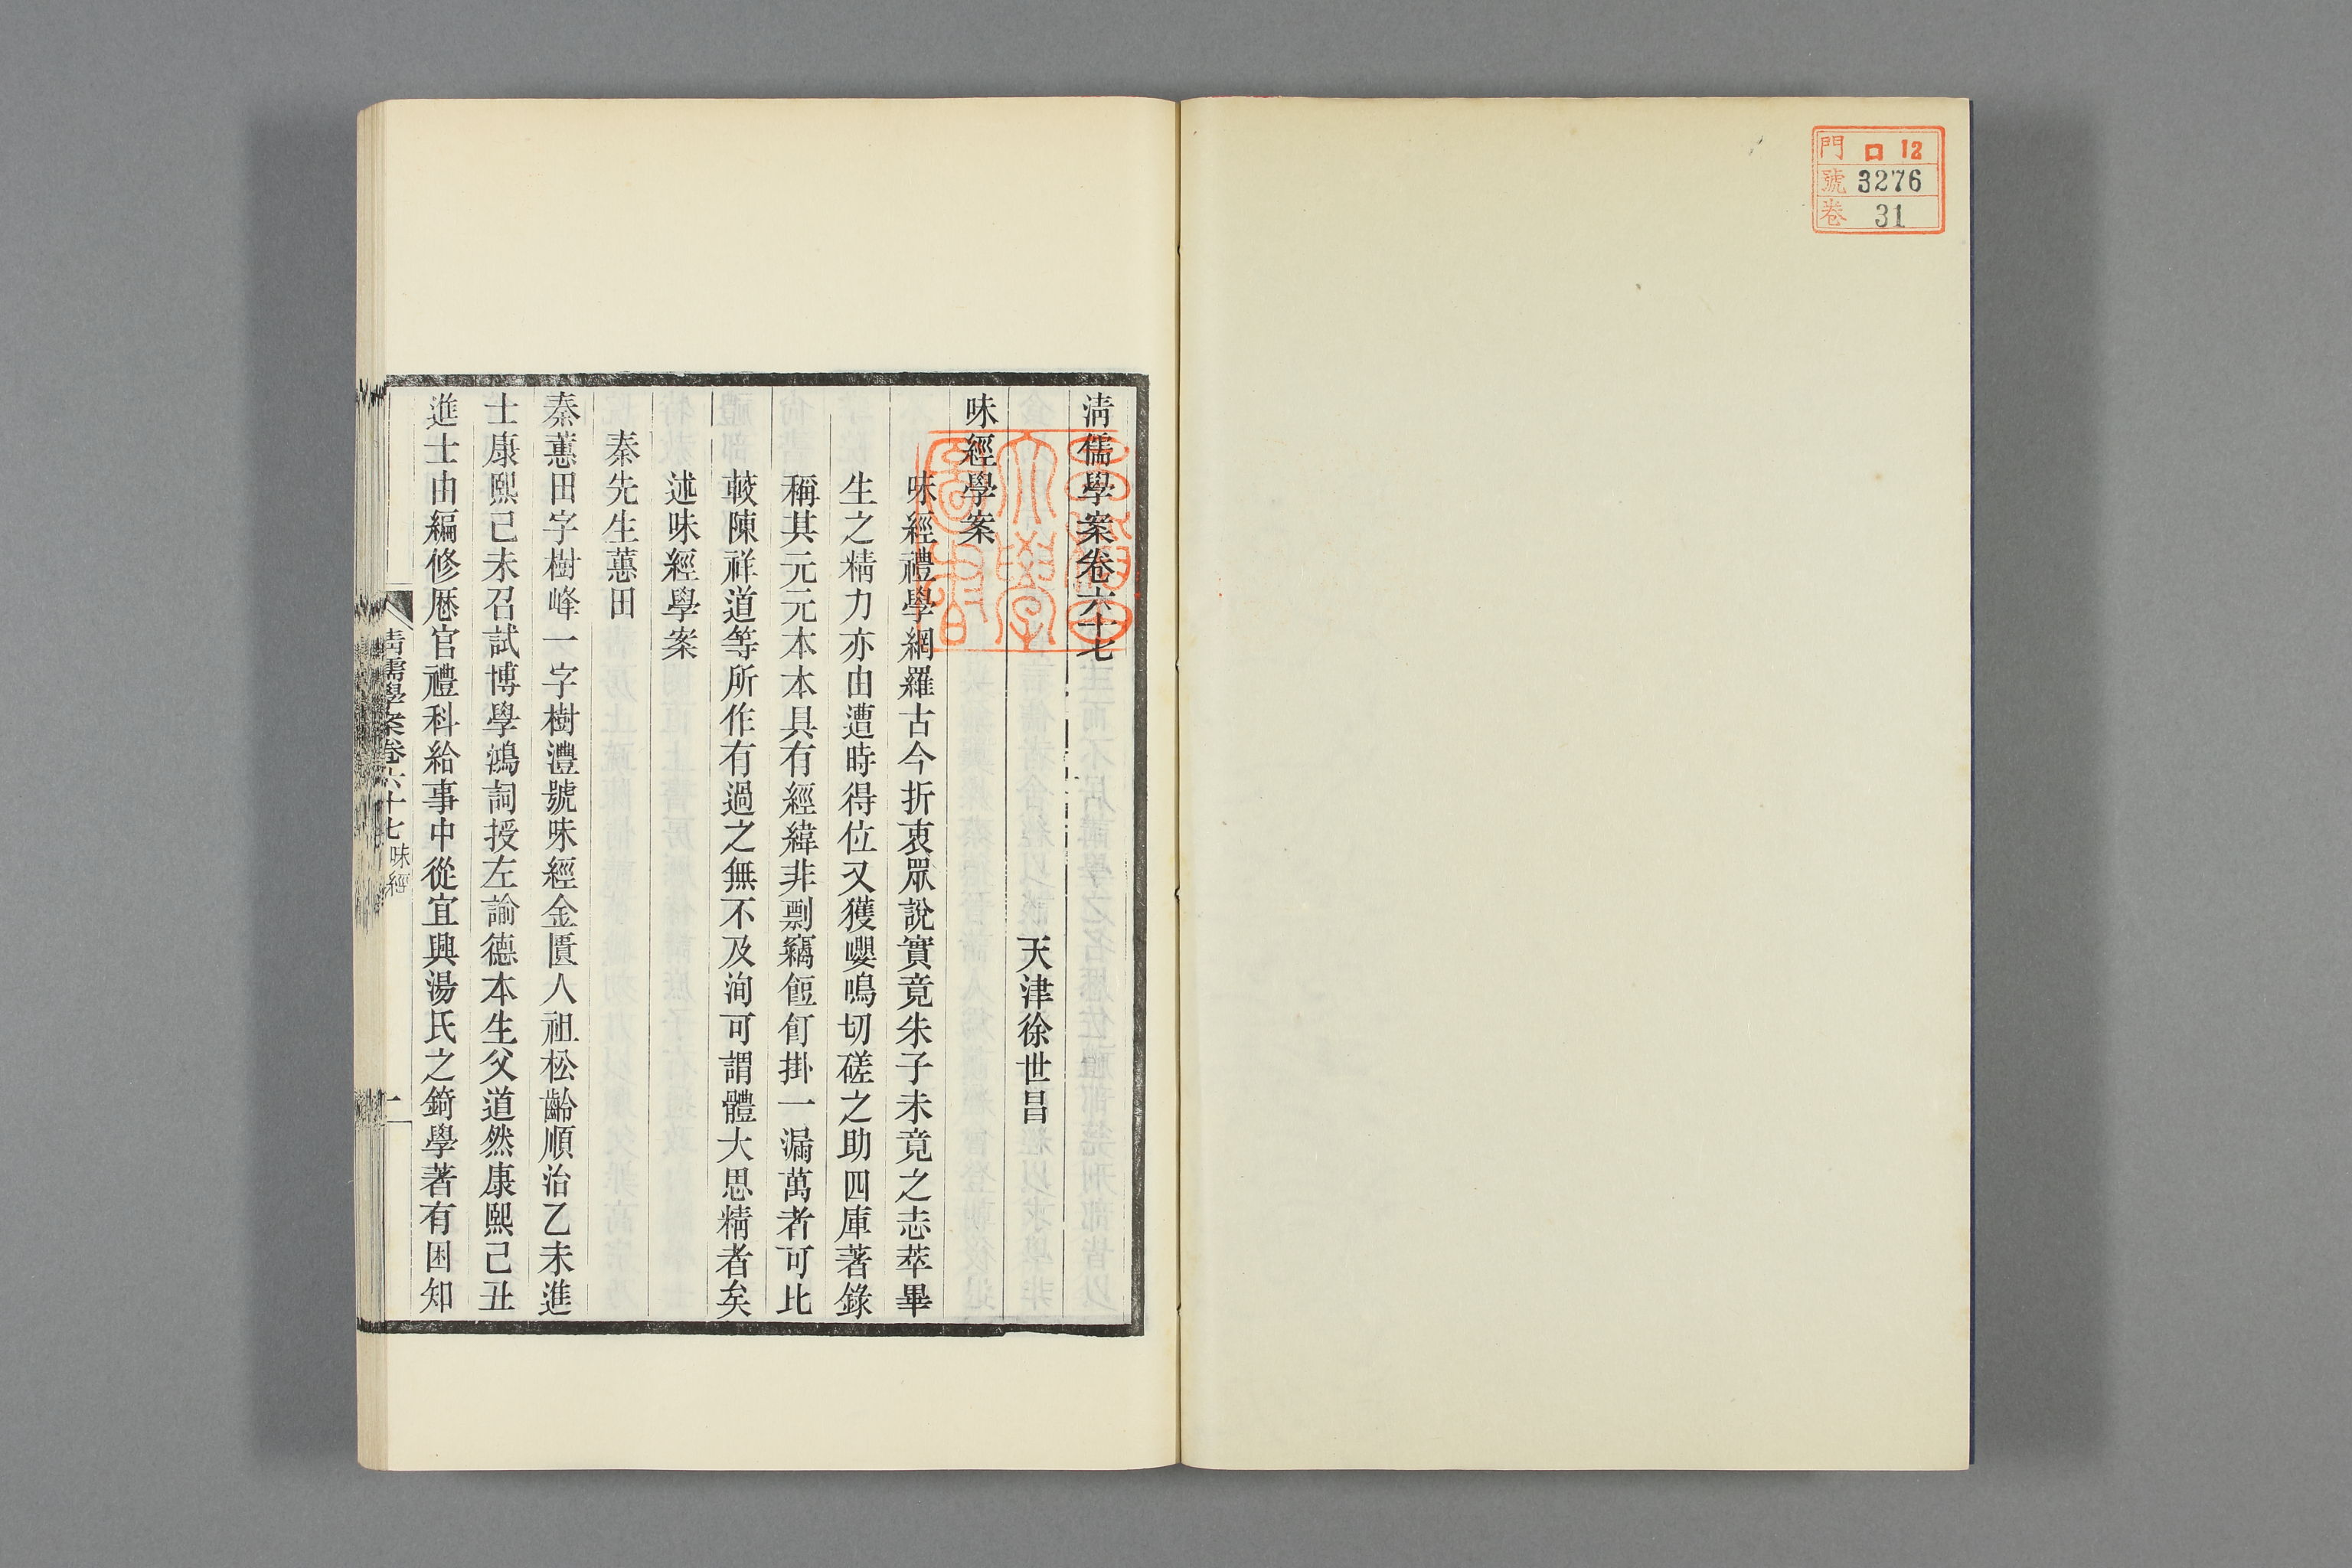 門 ロ 12
號 3276
卷 31
清儒學案卷六十七
天津徐世昌
味經學案
味經禮學網羅古今折衷眾說實竟朱子未竟之志萃畢
生之精力亦由遭時得位又獲嚶鳴切磋之助四庫著錄
稱其元元本本具有經緯非剽竊餖飣掛一漏萬者可比
較陳祥道等所作有過之無不及洵可謂體大思精者矣
述味經學案
秦先生蕙田
秦蕙田字樹峰一字樹灃號味經金匱人祖松齡順治乙未進
士康熙己未召試博學鴻詞授左諭德本生父道然康熙己丑
進士由編修歷官禮科給事中從宜興湯氏之錡學著有困知
清儒學案卷六十七 味經
一